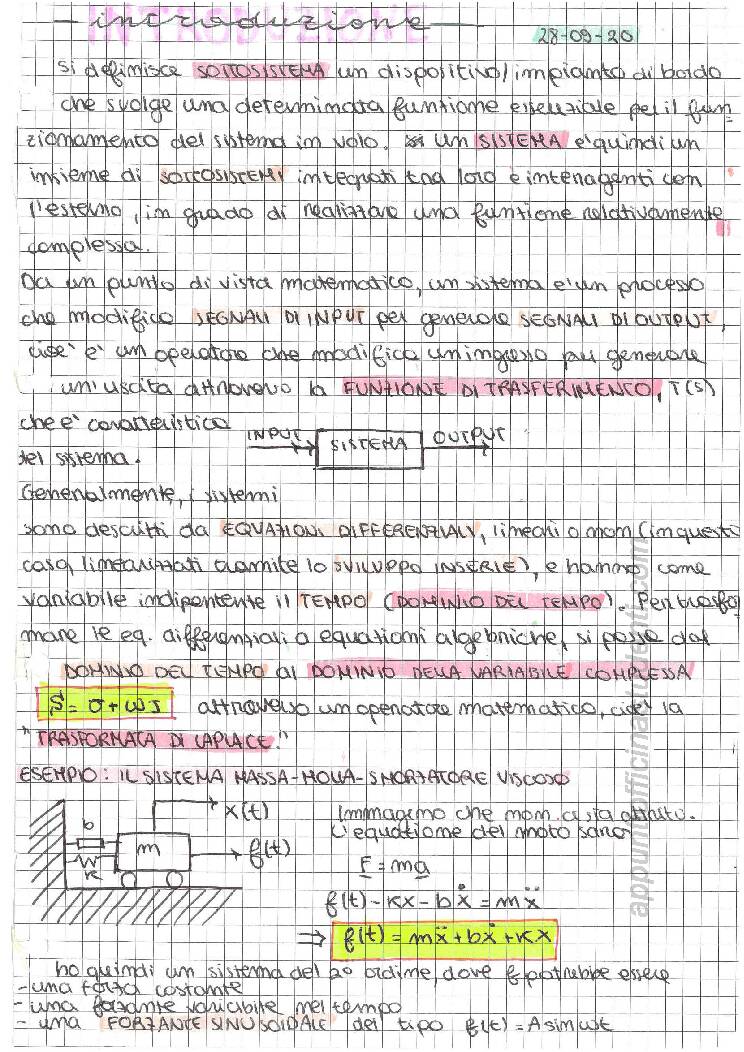 introduzione
28-09-20
si definisce SOTTOSISTEMA un dispositivo/impianto di bordo
che svolge una determinata funzione essenziale per il fun
zionamento del sistema in volo. Un SISTEMA e' quindi un
insieme di SOTTOSISTEMI integrati tra loro e interagenti con
l'esterno, in grado di realizzare una funzione relativamente
complessa.
Da un punto di vista matematico, un sistema e' un processo
che modifica SEGNALI DI INPUT per generare SEGNALI DI OUTPUT,
cioe' e' un operatore che modifica un ingresso per generare
un' uscita attraverso la FUNZIONE DI TRASFERIMENTO, T(s)
che e' caratteristica
del sistema.
INPUT SISTEMA OUTPUT
Generalmente, i sistemi
sono descritti da EQUAZIONI DIFFERENZIALI, lineari o non (in questo
caso, linearizzati tramite lo SVILUPPO IN SERIE), e hanno come
variabile indipentente il TEMPO (DOMINIO DEL TEMPO). Per trasfor
mare le eq. differenziali a equazioni algebriche, si passa dal
DOMINIO DEL TEMPO al DOMINIO DELLA VARIABILE COMPLESSA
S = σ + ωJ attraverso un operatore matematico, cioe' la
"TRASFORMATA DI LAPLACE."
ESEMPIO: IL SISTEMA MASSA-MOLLA-SMORZATORE VISCOSO
b
k
m
x(t)
f(t)
Immagino che non ci sia attrito.
L'equazione del moto sara'
F = ma
f(t) - kx - bẋ = mẍ
⇒ f(t) = mẍ + bẋ + kx
ho quindi un sistema del 2o ordine, dove f potrebbe essere
- una forza costante
- una forzante variabile nel tempo
- una FORZANTE SINUSOIDALE del tipo f(t) = A sin ωt
appuntiofficinastudenti.com